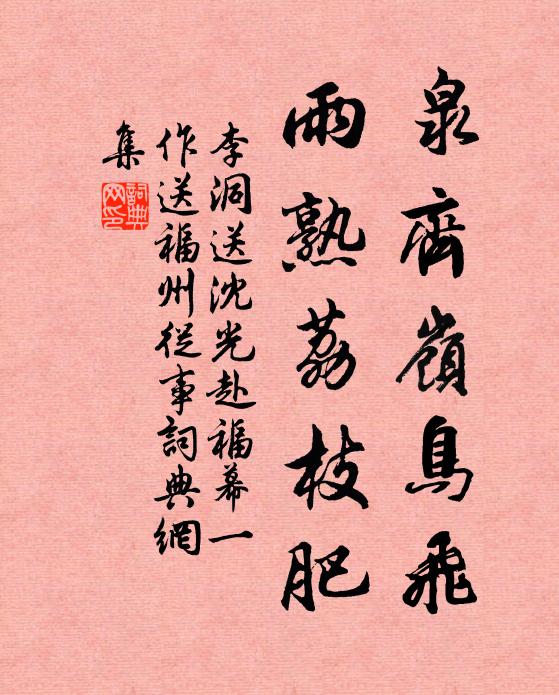 泉齊嶺鳥飛
雨熟荔枝肥
李洞送沈光赴福幕一
作送福州從事詞典網
集
詞典
网印